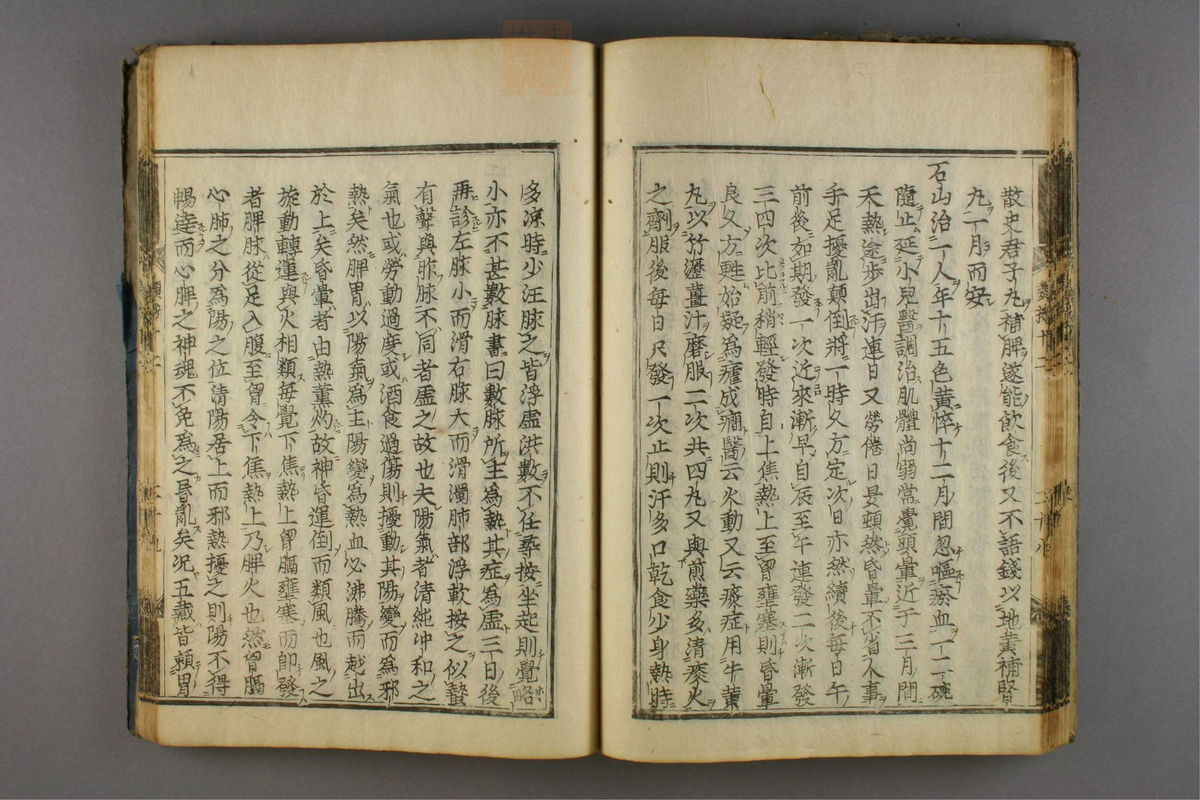 散史君子丸補脾遂能飲食後又不語錢以地黃補腎
九一月而安
石山治一人年十五色黃悴十二月間忽嘔瘀血一二碗
隨止延小兒醫調治肌體尚弱常覺頭暈近于三月間
天熱途步出汗連日又勞倦日昃頓然昏暈不省人事
手足擾亂顛倒將一時久方定次日亦然續後每日午
前後如期發一次近來漸早自辰至午連發二次漸發
三四次比前稍輕發時自上焦熱上至胷壅塞則昏暈
良久方甦始疑為瘧成癇醫云火動又云痰症用牛黃
丸以竹瀝薑汁磨服二次共四丸又與煎藥多清痰火
之劑服後每日只發一次止則汗多口乾食少身熱時
多凉時少汪脉之皆浮虛洪數不任尋按坐起則覺略
小亦不甚數脉書曰數脉所主為熱其症為虛三日後
再診左脉小而滑右脉大而滑濁肺部浮軟按之似蟄
有聲與昨脉不同者虛之故也夫陽氣者清純冲和之
氣也或勞動過度或酒食過傷則擾動其陽變而為邪
熱矣然脾胃以陽氣為主陽變為熱血必沸騰而越出
於上矣昏暈者由熱熏灼故神昏運倒而類風也風之
旋動轉運與火相類每覺下焦熱上胷膈壅塞而即發
者脾脉從足入腹至胷令下焦熱上乃脾火也然胷膈
心肺之分為陽之位清陽居上而邪熱擾之則陽不得
暢達而心脾之神魂不免為之昏亂矣况五藏皆賴胃